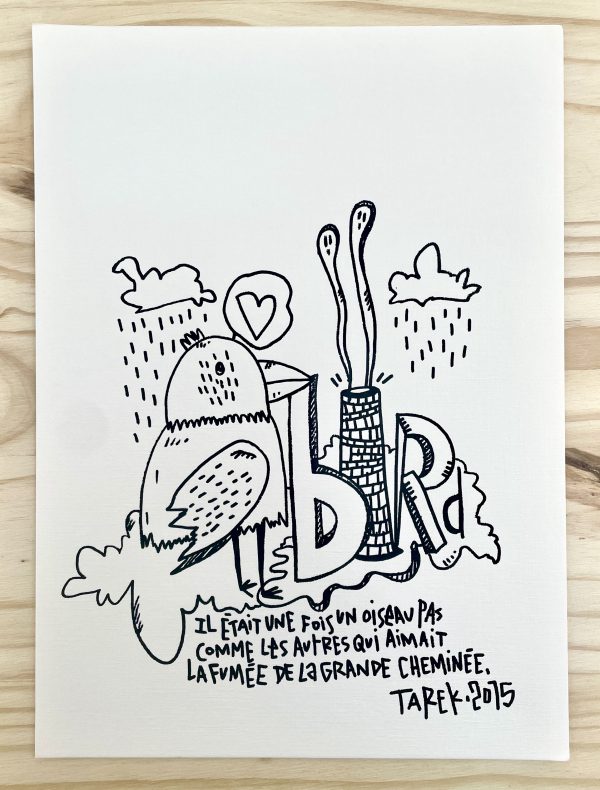 bIRd
IL ÉTAIT UNE FOIS UN OISEAU PAS
COMME LES AUTRES QUI AIMAIT
LA FUMÉE DE LA GRANDE CHEMINÉE.
TAREK.2015